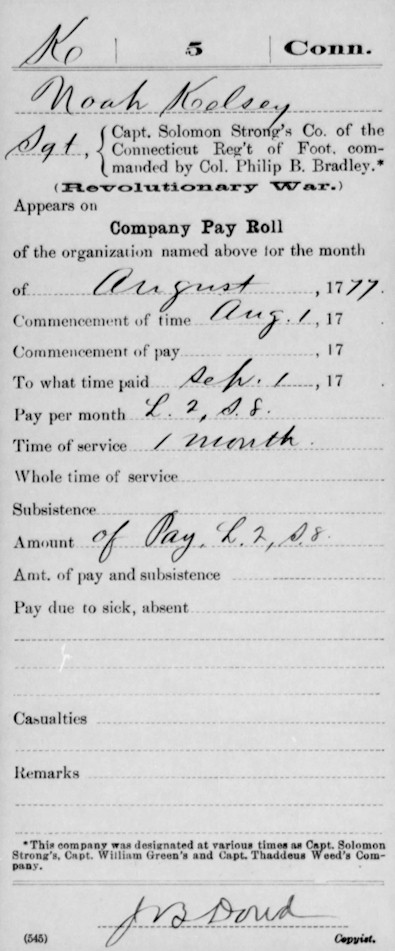 K | 5 | Conn.
Noah Kelsey
Sgt, { Capt. Solomon Strong's Co. of the
Connecticut Reg't of Foot, com-
manded by Col. Philip B. Bradley.*
(Revolutionary War.)
Appears on
Company Pay Roll
of the organization named above for the month
of August, 1777.
Commencement of time Aug. 1, 17 .
Commencement of pay , 17
To what time paid Sep. 1, 17 .
Pay per month L. 2, S. 8.
Time of service 1 month.
Whole time of service
Subsistence
Amount of Pay, L. 2, S. 8.
Amt. of pay and subsistence
Pay due to sick, absent
Casualties
Remarks
*This company was designated at various times as Capt. Solomon
Strong's, Capt. William Green's and Capt. Thaddeus Weed's Com-
pany.
J B Doud
(545) Copyist.